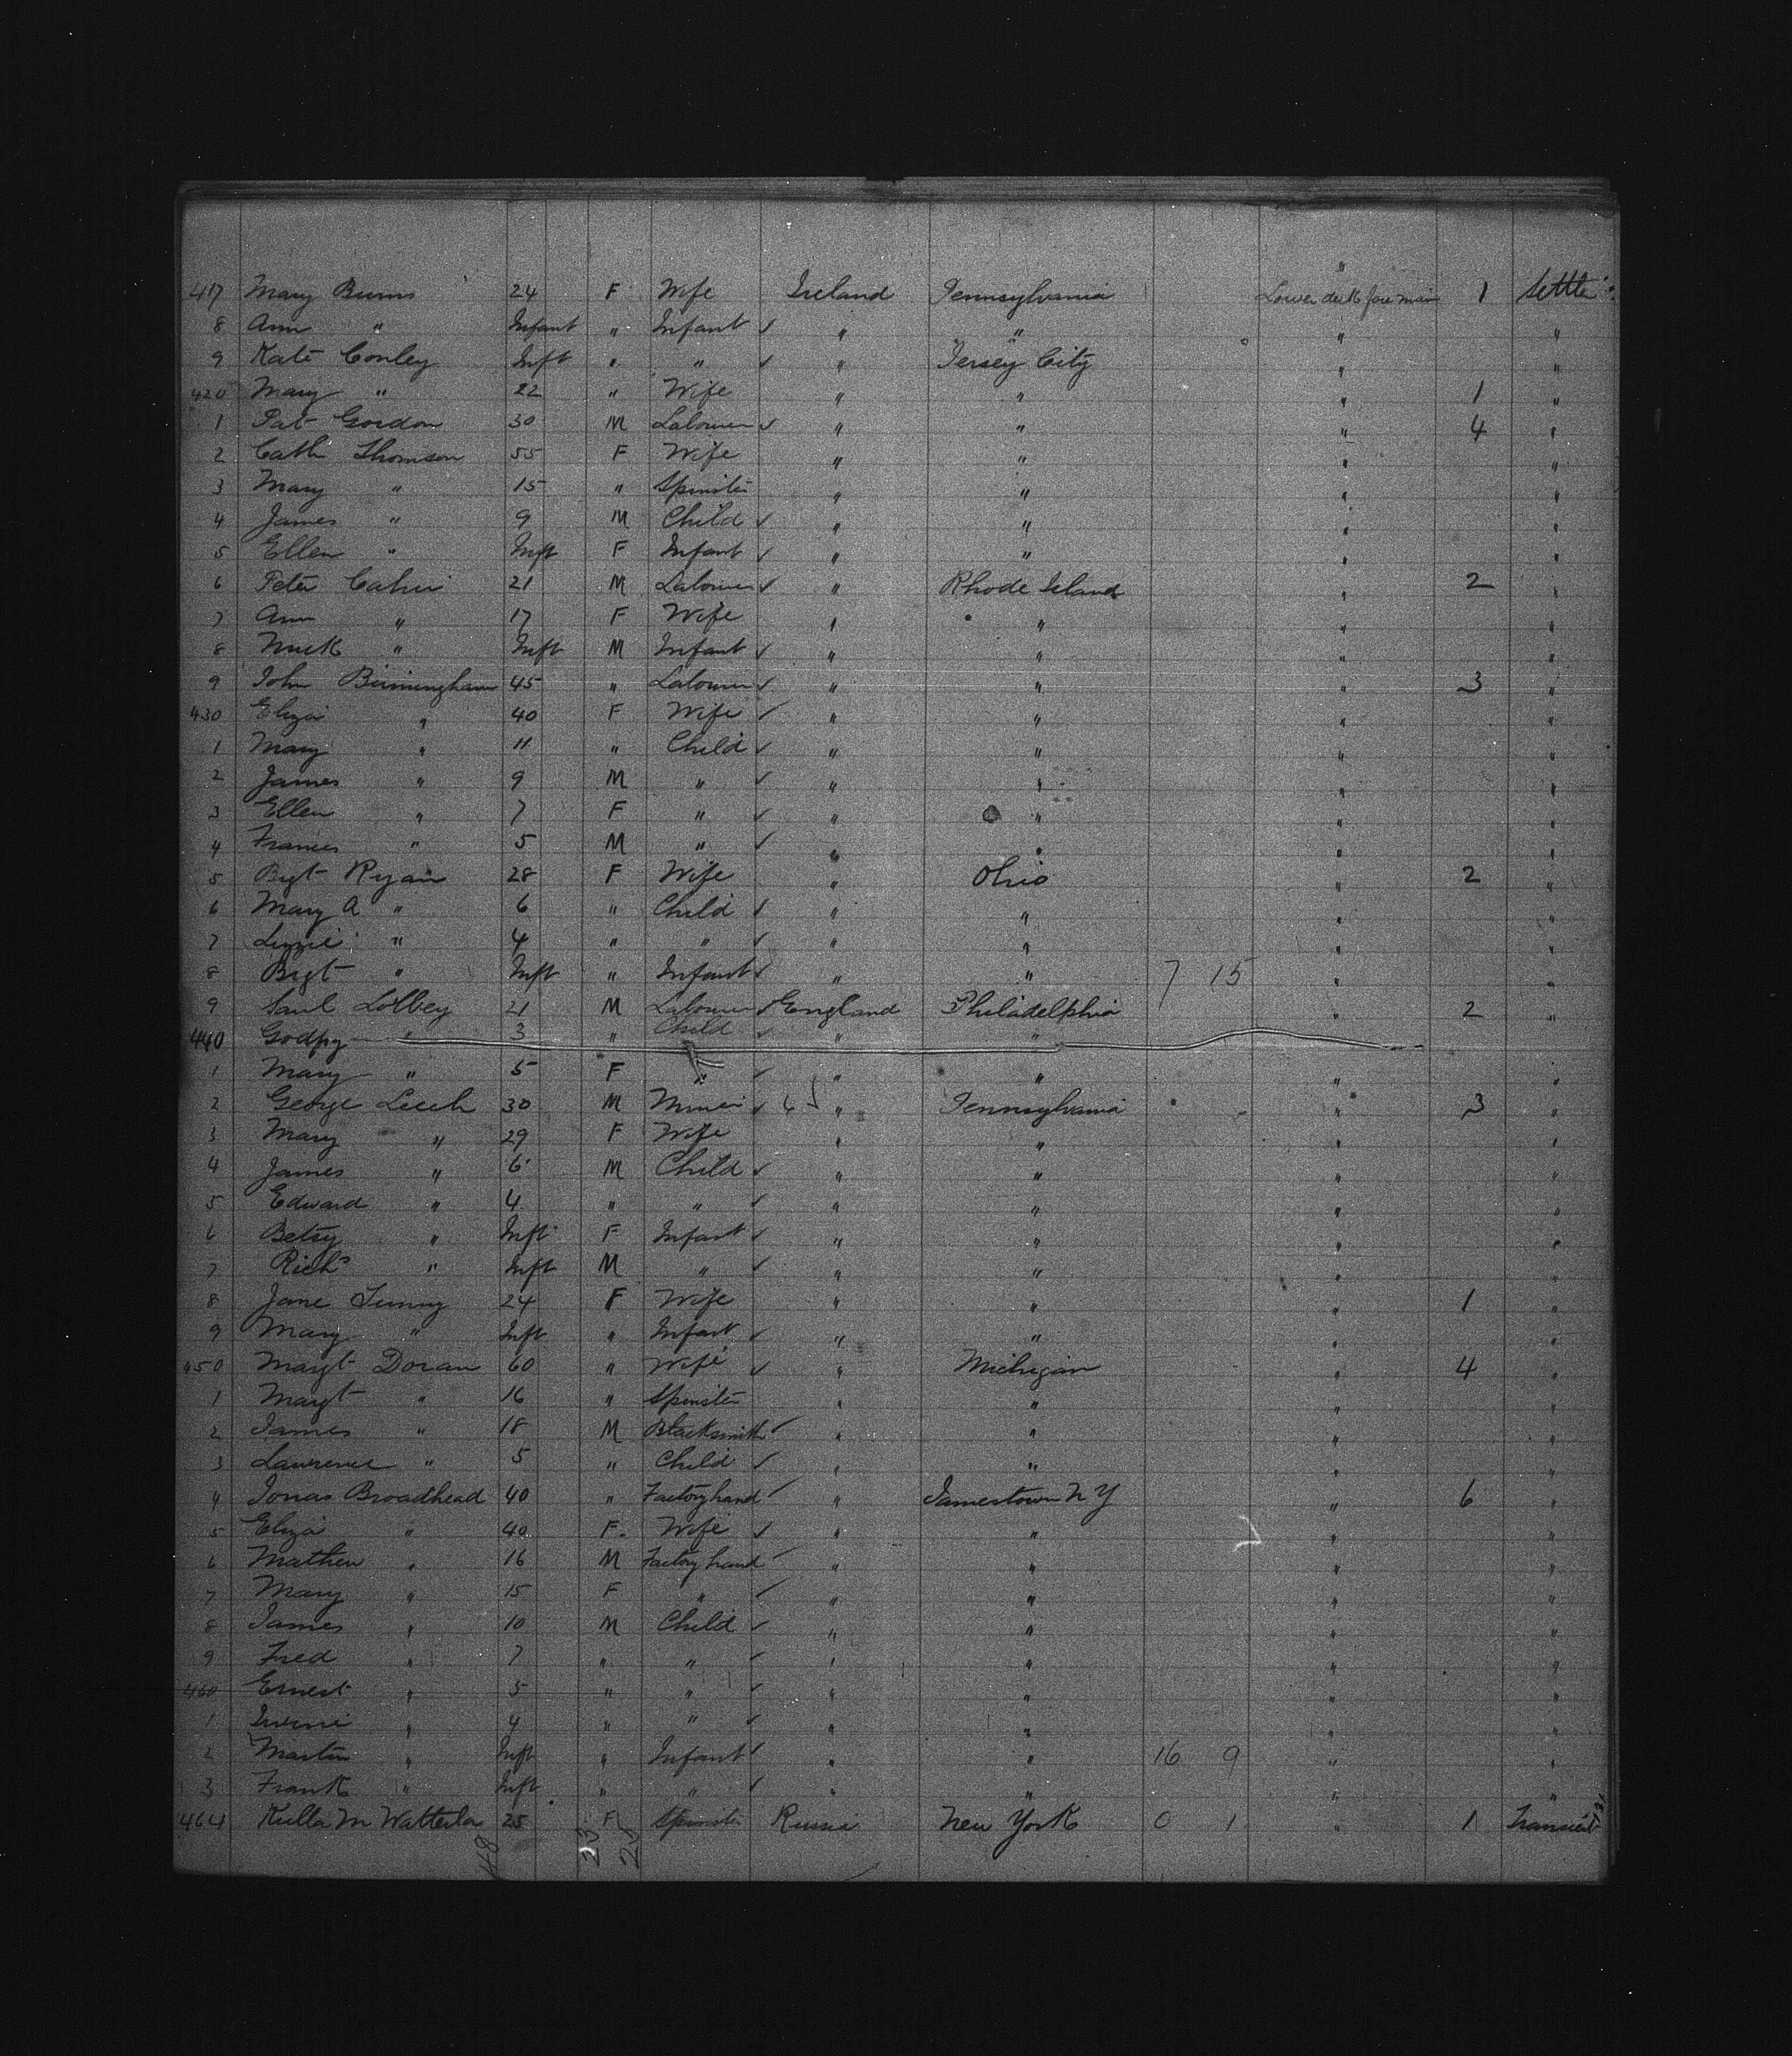 "
417 Mary Burns 24 F Wife Ireland Pennsylvania Lower deck fore main 1 Settler
8 Ann " Infant " Infant ✓ " " " "
9 Kate Conley Inft " " ✓ " Jersey City " "
420 Mary " 22 " Wife " " " 1 "
1 Pat Gordon 30 M Labourer ✓ " " " 4 "
2 Cath Thomson 55 F Wife " " " "
3 Mary " 15 " Spinster " " " "
4 James " 9 M Child ✓ " " " "
5 Ellen " Inft F Infant ✓ " " " "
6 Peter 21 M Labourer ✓ " Rhode Island " 2 "
7 Ann " 17 F Wife " " " "
8 " Inft M Infant ✓ " " " "
9 John Birmingham 45 " Labourer ✓ " " " 3 "
430 Eliza " 40 F Wife ✓ " " " "
1 Mary " 11 " Child ✓ " " " "
2 James " 9 M " ✓ " " " "
3 Ellen " 7 F " ✓ " " " "
4 Francis " 5 M " ✓ " " " "
5 Bgt Ryan 28 F Wife " Ohio " 2 "
6 Mary A " 6 " Child ✓ " " " "
7 Lizzie " 4 " " ✓ " " " "
8 Brgt " Inft " Infant ✓ " " 7 15 " "
9 21 M Labourer ✓ England Philadelphia " 2 "
440 Godfry " 3 " Child ✓ " "
1 Mary " 5 F " ✓ " " " "
2 George Leech 30 M Miner ✓ " Pennsylvania " 3 "
3 Mary " 29 F Wife " " " "
4 James " 6 M Child ✓ " " " "
5 Edward " 4 " " ✓ " " " "
6 Betsy " Inft F Infant ✓ " " " "
7 Richd " Inft M " ✓ " " " "
8 Jane 24 F Wife " " " 1 "
9 Mary " Inft " Infant ✓ " " " "
450 Margt Doran 60 " Wife ✓ " Michigan " 4 "
1 Margt " 16 " Spinster " " " "
2 James " 18 M Blacksmith ✓ " " " "
3 Lawrence " 5 " Child ✓ " " " "
4 Jonas Broadhead 40 " Factory hand ✓ " Jamestown N Y " 6 "
5 Eliza " 40 F. Wife ✓ " " " "
6 Mathew " 16 M Factory hand ✓ " " " "
7 Mary " 15 F " ✓ " " " "
8 James " 10 M Child ✓ " " " "
9 Fred " 7 " " ✓ " " " "
460 Ernest " 5 " " ✓ " " " "
1 " 4 " " ✓ " " " "
2 Martin " Inft " Infant ✓ " " 16 9 " "
3 Frank " Inft " " ✓ " " " "
464 25 F Spinster Russia New York 0 1 " 1 Transient
48 23 25